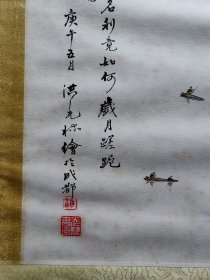 名利竟如何歲月蹉跎
庚午五月洪元标繪於成都